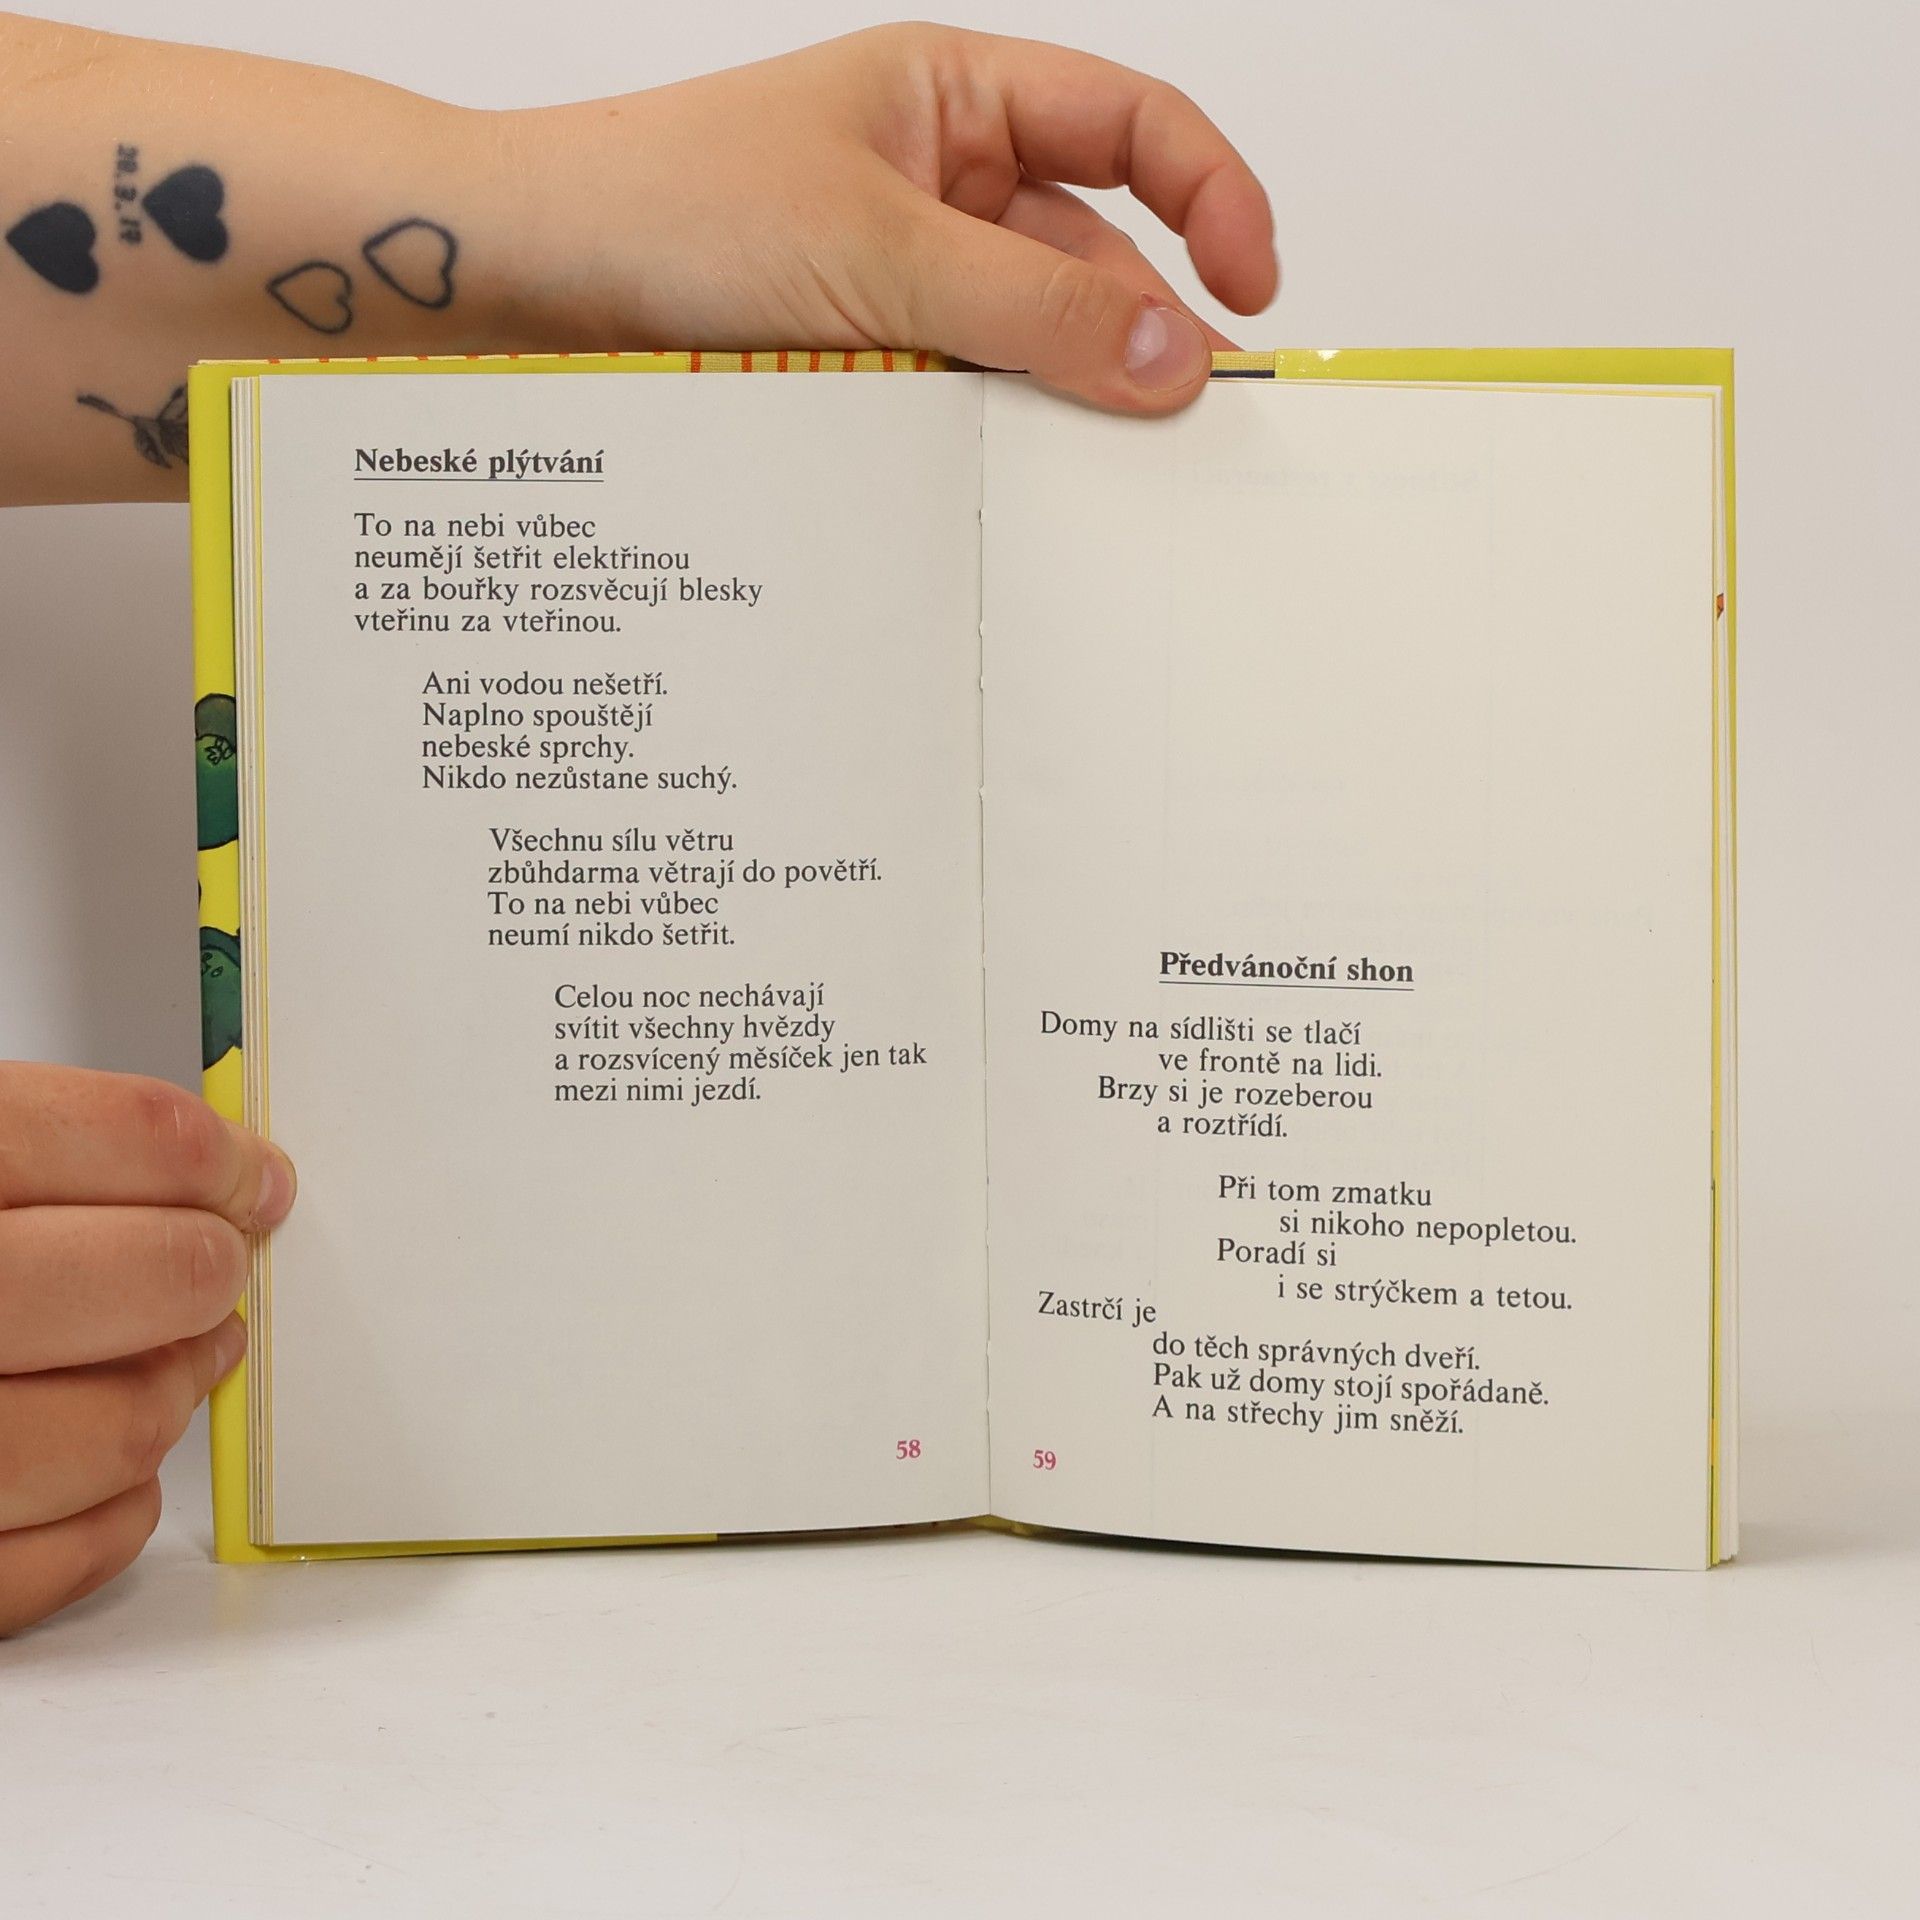 Nebeské plýtvání
To na nebi vůbec
neumějí šetřit elektřinou
a za bouřky rozsvěcují blesky
vteřinu za vteřinou.
Ani vodou nešetří.
Naplno spouštějí
nebeské sprchy.
Nikdo nezůstane suchý.
Všechnu sílu větru
zbůhdarma větrají do povětří.
To na nebi vůbec
neumí nikdo šetřit.
Celou noc nechávají
svítit všechny hvězdy
a rozsvícený měsíček jen tak
mezi nimi jezdí.
58
Předvánoční shon
Domy na sídlišti se tlačí
ve frontě na lidi.
Brzy si je rozeberou
a roztřídí.
Při tom zmatku
si nikoho nepopletou.
Poradí si
i se strýčkem a tetou.
Zastrčí je
do těch správných dveří.
Pak už domy stojí spořádaně.
A na střechy jim sněží.
59